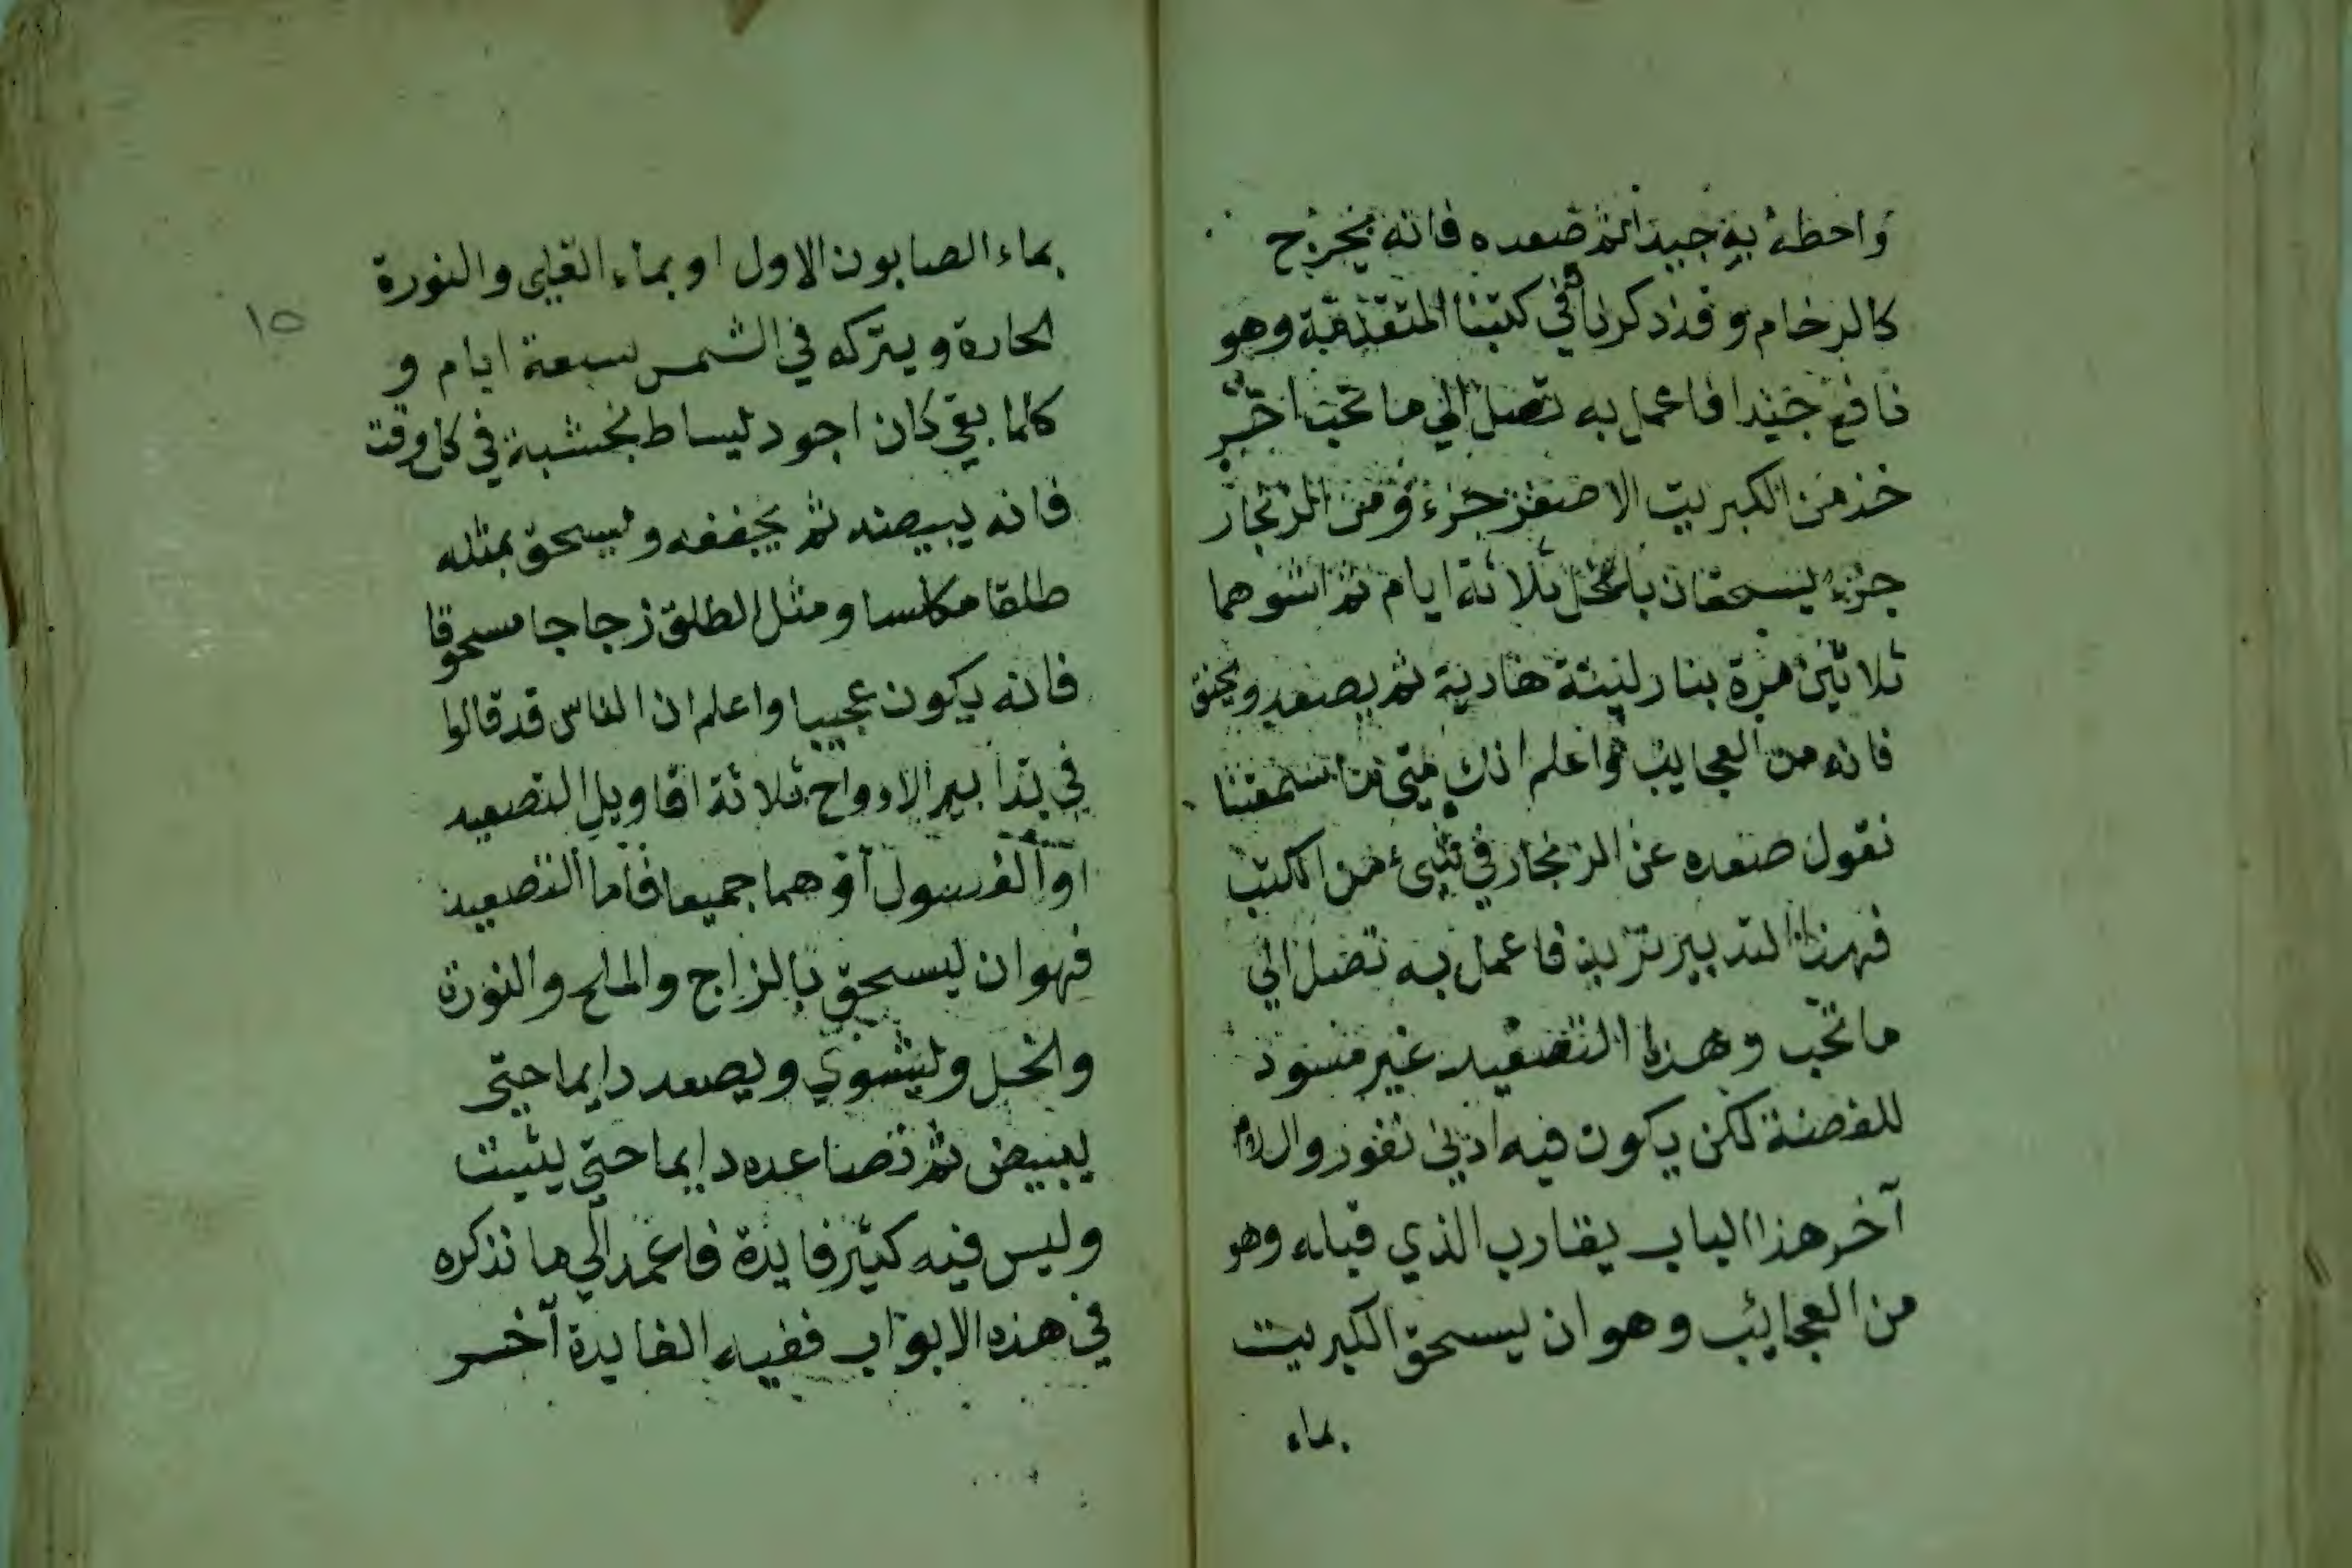 واخلطه به جيدا ثم صعده فانه يخرج
كالرخام وقد ذكرناه في كتبنا المتقدمة وهو
نافع جيدا فاعمل به تصل الي ما تحب اخر
خذ من الكبريت الاصفر جزء ومن الزنجار
جزء يسحقان بالخل ثلاثة ايام ثم اشوهما
ثلاثين مرة بنار لينة هادية ثم يصعد ويخنق
فانه من العجايب واعلم انك متي ما سمعتنا
نقول صعده عن الزنجار في شيء من الكتب
فهذا التدبير نريد فاعمل به تصل الي
ما تحب وهذا التصعيد غير مسود
للفضة لكن يكون فيه ادني نفور والسلام
آخر هذا الباب يقارب الذي قبله وهو
من العجائب وهو ان يسحق الكبريت
بماء
١٥
بماء الصابون الاول او بماء القلي والنورة
الحارة ويتركه في الشمس سبعة ايام و
كلما بقي كان اجود ليساط بخشبة في كل وقت
فانه يبيضه ثم يجففه وليسحق بمثله
طلقا مكلسا ومثل الطلق زجاجا مسحوقا
فانه يكون عجيبا واعلم ان الناس قد قالوا
في تدابير الارواح ثلاثة اقاويل التصعيد
او الغسول آو هما جميعا فاما التصعيد
فهو ان ليسحق بالزاج والملح والنورة
والخل وليشوي ويصعد دايما حتي
يبيض ثم تصاعده دايما حتي يثبت
وليس فيه كثير فايدة فاعمد الي ما نذكره
في هذه الابواب ففيه الفايدة آخر